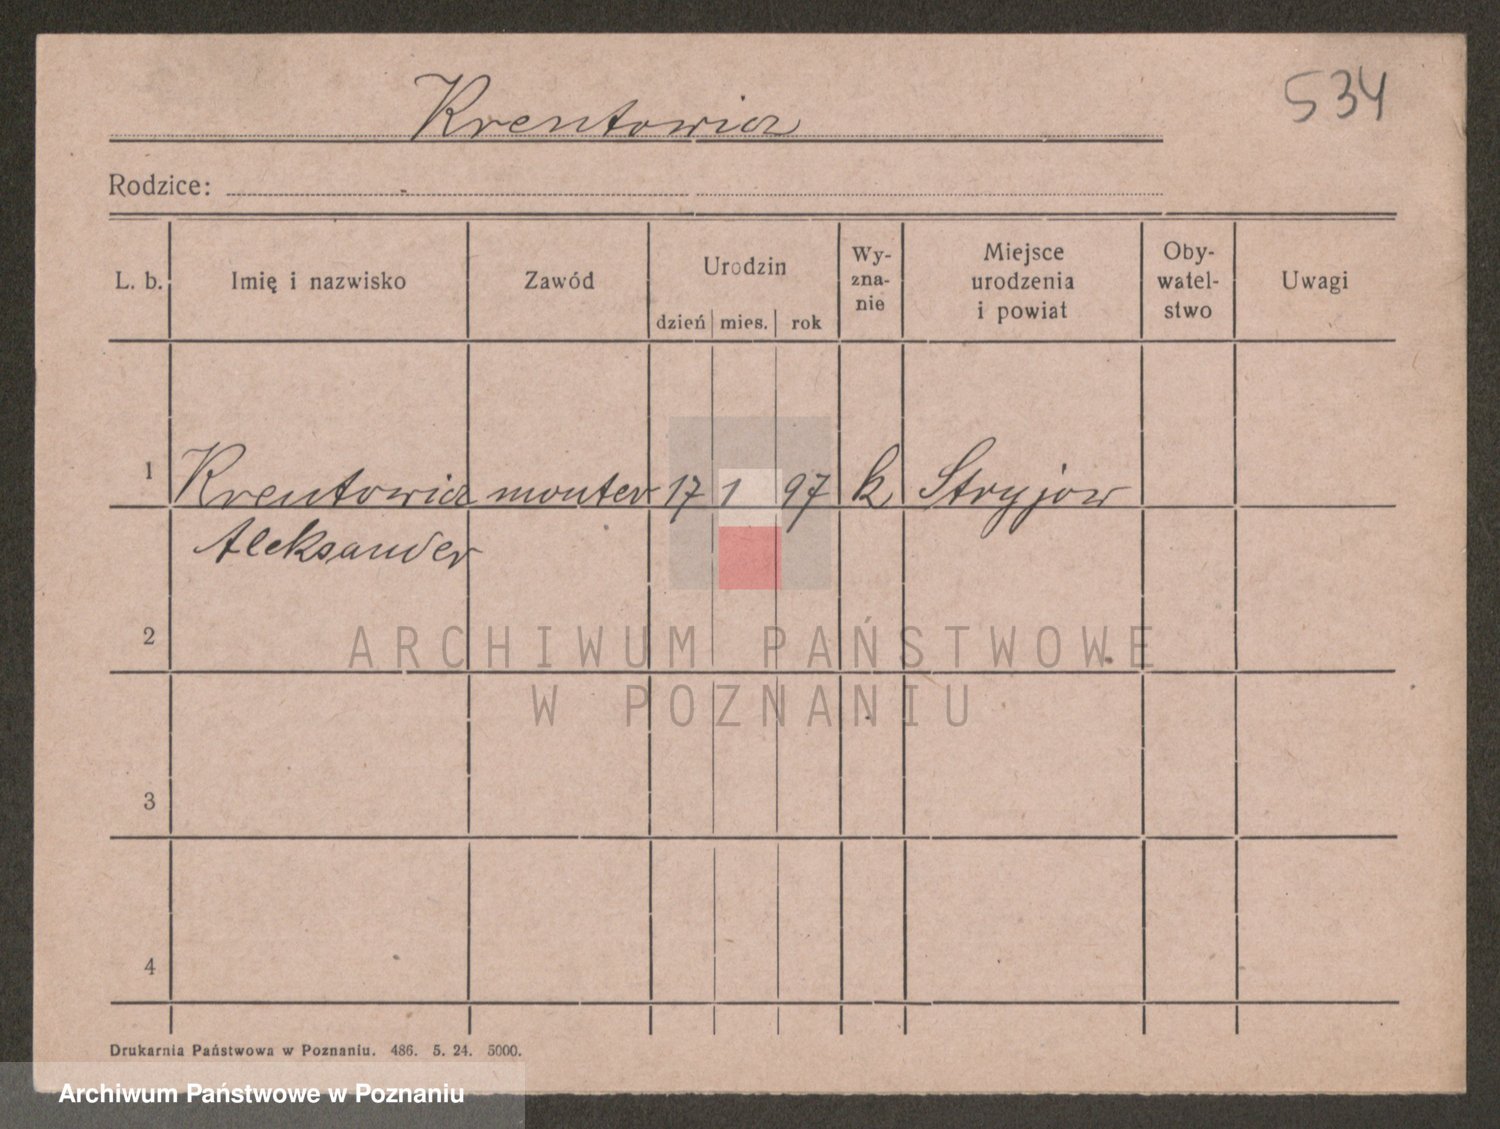 Krentowicz
534
Rodzice:
L. b. Imię i nazwisko Zawód Urodzin dzień mies. rok Wy-zna-nie Miejsce urodzenia i powiat Oby-watel-stwo Uwagi
1 Krentowicz monter 17 1 97 k Stryjow
Aleksander
2
ARCHIWUM PAŃSTWOWE
W POZNANIU
3
4
Drukarnia Państwowa w Poznaniu. 486. 5. 24. 5000.
Archiwum Państwowe w Poznaniu